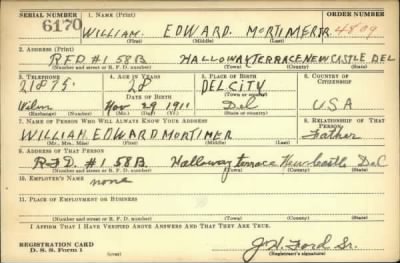 SERIAL NUMBER 1. NAME (Print) ORDER NUMBER
6170 WILLIAM. EDWARD. MORTIMER JR. 4809
(First) (Middle) (Last)
2. ADDRESS (Print)
RFD #1 58B HALLOWAY TERRACE NEW CASTLE DEL
(Number and street or R. F. D. number) (Town) (County) (State)
3. TELEPHONE 4. AGE IN YEARS 5. PLACE OF BIRTH 6. COUNTRY OF CITIZENSHIP
21875. 28 DEL CITY
DATE OF BIRTH (Town or county)
Wilm Nov 29 1911 Del USA
(Exchange) (Number) (Mo.) (Day) (Yr.) (State or country)
7. NAME OF PERSON WHO WILL ALWAYS KNOW YOUR ADDRESS 8. RELATIONSHIP OF THAT PERSON
WILLIAM EDWARD MORTIMER Father
(Mr., Mrs., Miss) (First) (Middle) (Last)
9. ADDRESS OF THAT PERSON
RFD. #1 58B. Halloway terrace New Castle Del
(Number and street or R. F. D. number) (Town) (County) (State)
10. EMPLOYER'S NAME
none
11. PLACE OF EMPLOYMENT OR BUSINESS
(Number and street or R. F. D. number) (Town) (County) (State)
I AFFIRM THAT I HAVE VERIFIED ABOVE ANSWERS AND THAT THEY ARE TRUE.
REGISTRATION CARD
D. S. S. Form 1
J. H. Ford Sr.
(Registrant's signature)